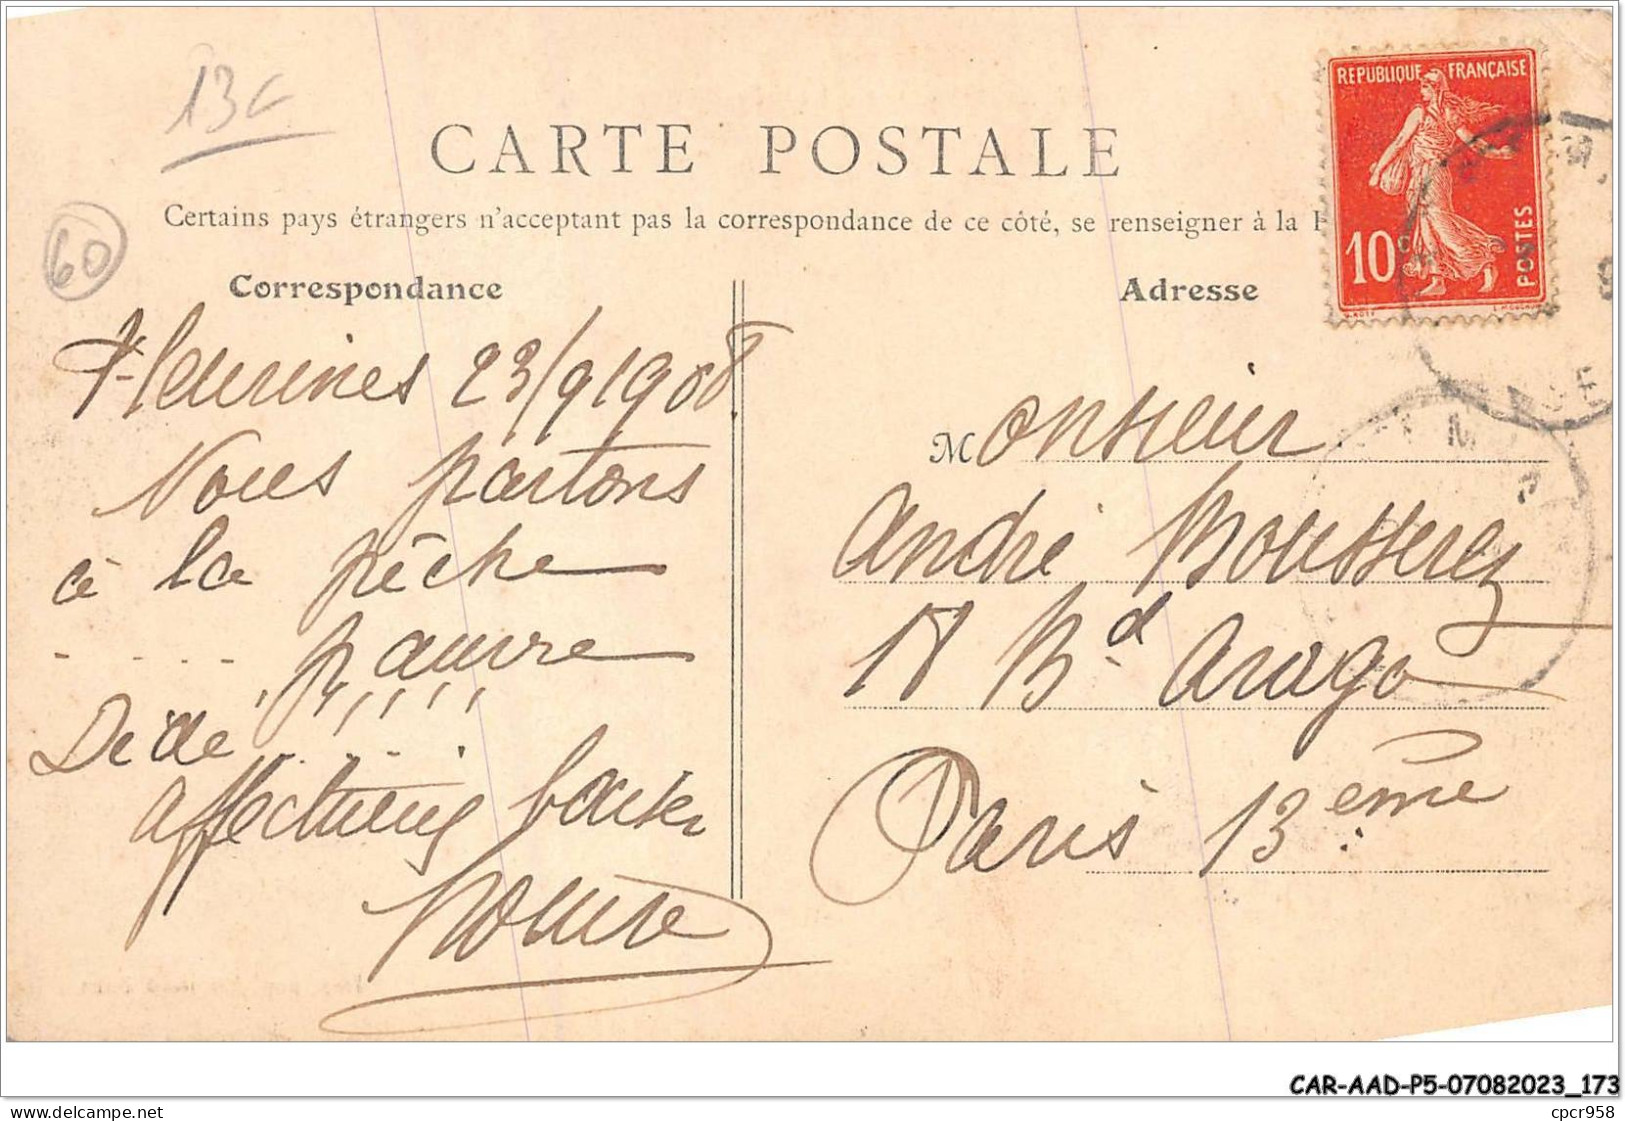 13€
60
CARTE POSTALE
Certains pays étrangers n'acceptant pas la correspondance de ce côté, se renseigner à la
REPUBLIQUE FRANÇAISE
10c
POSTES
Correspondance
Fleurines 23/9/1908.
Nous partons
à la pêche
. . . . pauvre
Dédé !!!!!! . . . . .
Affectueux baisers
Louise
Adresse
Monsieur
André Bousserez
18 Bd Arago
Paris 13ème
CAR-AAD-P5-07082023_173
cpcr958